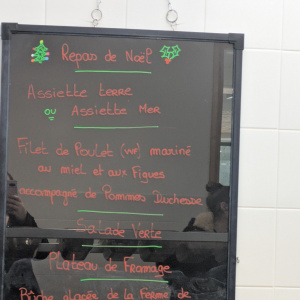 Repas de Noël
Assiette terre
ou Assiette Mer
Filet de Poulet (VVF) mariné
au miel et aux Figues
accompagné de Pommes Duchesse
Salade Verte
Plateau de Fromage
Bûche glacée de la Ferme de